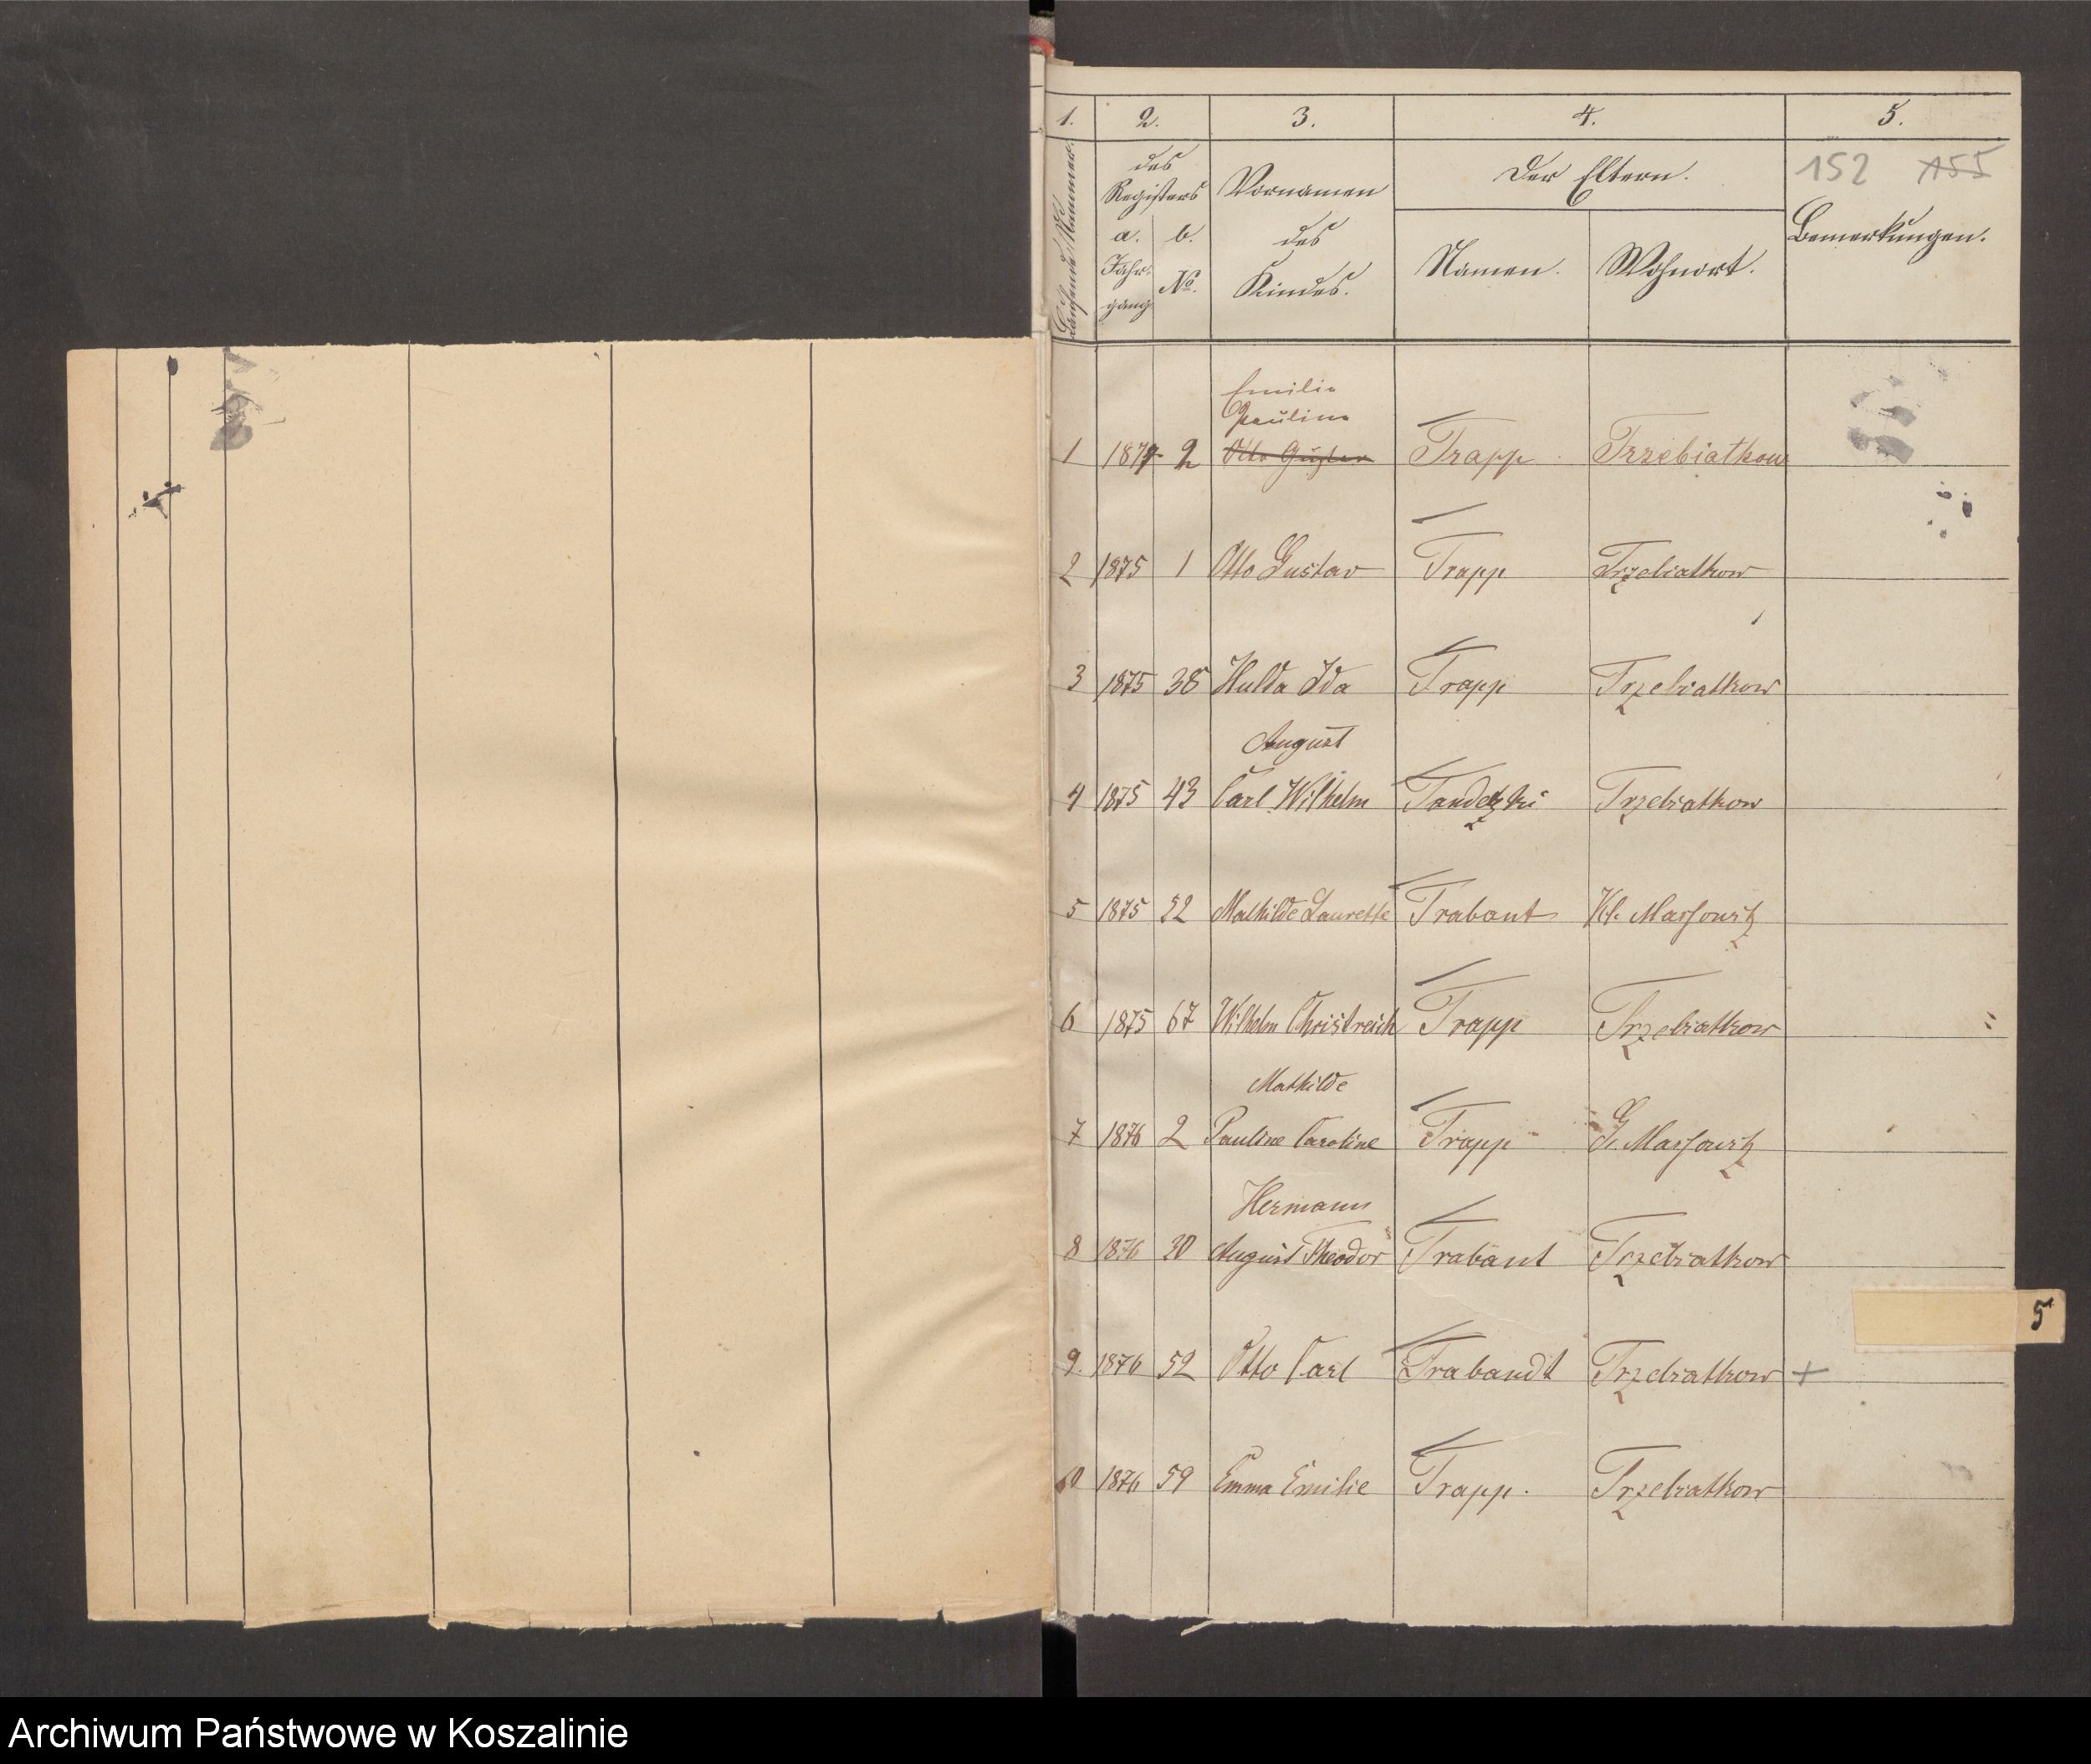 1. 2. 3. 4. 5.
152 155
Laufende Nummer.
des Registers
a. Jahrgang
b. No.
Vornamen des Kindes.
Der Eltern.
Namen. Wohnort.
Bemerkungen.
Emilie
Pauline
1 187 2 Otto Gustav Trapp Trzebiatkow
2 1875 1 Otto Gustav Trapp Trzebiatkow
3 1875 38 Hulda Ida Trapp Trzebiatkow
August
4 1875 43 Carl Wilhelm Trzebiatkow
5 1875 52 Mathilde Laurette Trabant Kl. Massowitz
6 1875 67 Wilhelm Christreich Trapp Trzebiatkow
Mathilde
7 1876 2 Pauline Caroline Trapp Gr. Massowitz
Hermann
8 1876 30 August Theodor Trabant Trzebiatkow
9. 1876 52 Otto Carl Trabandt Trzebiatkow +
5
10 1876 59 Emma Emilie Trapp. Trzebiatkow
Archiwum Państwowe w Koszalinie